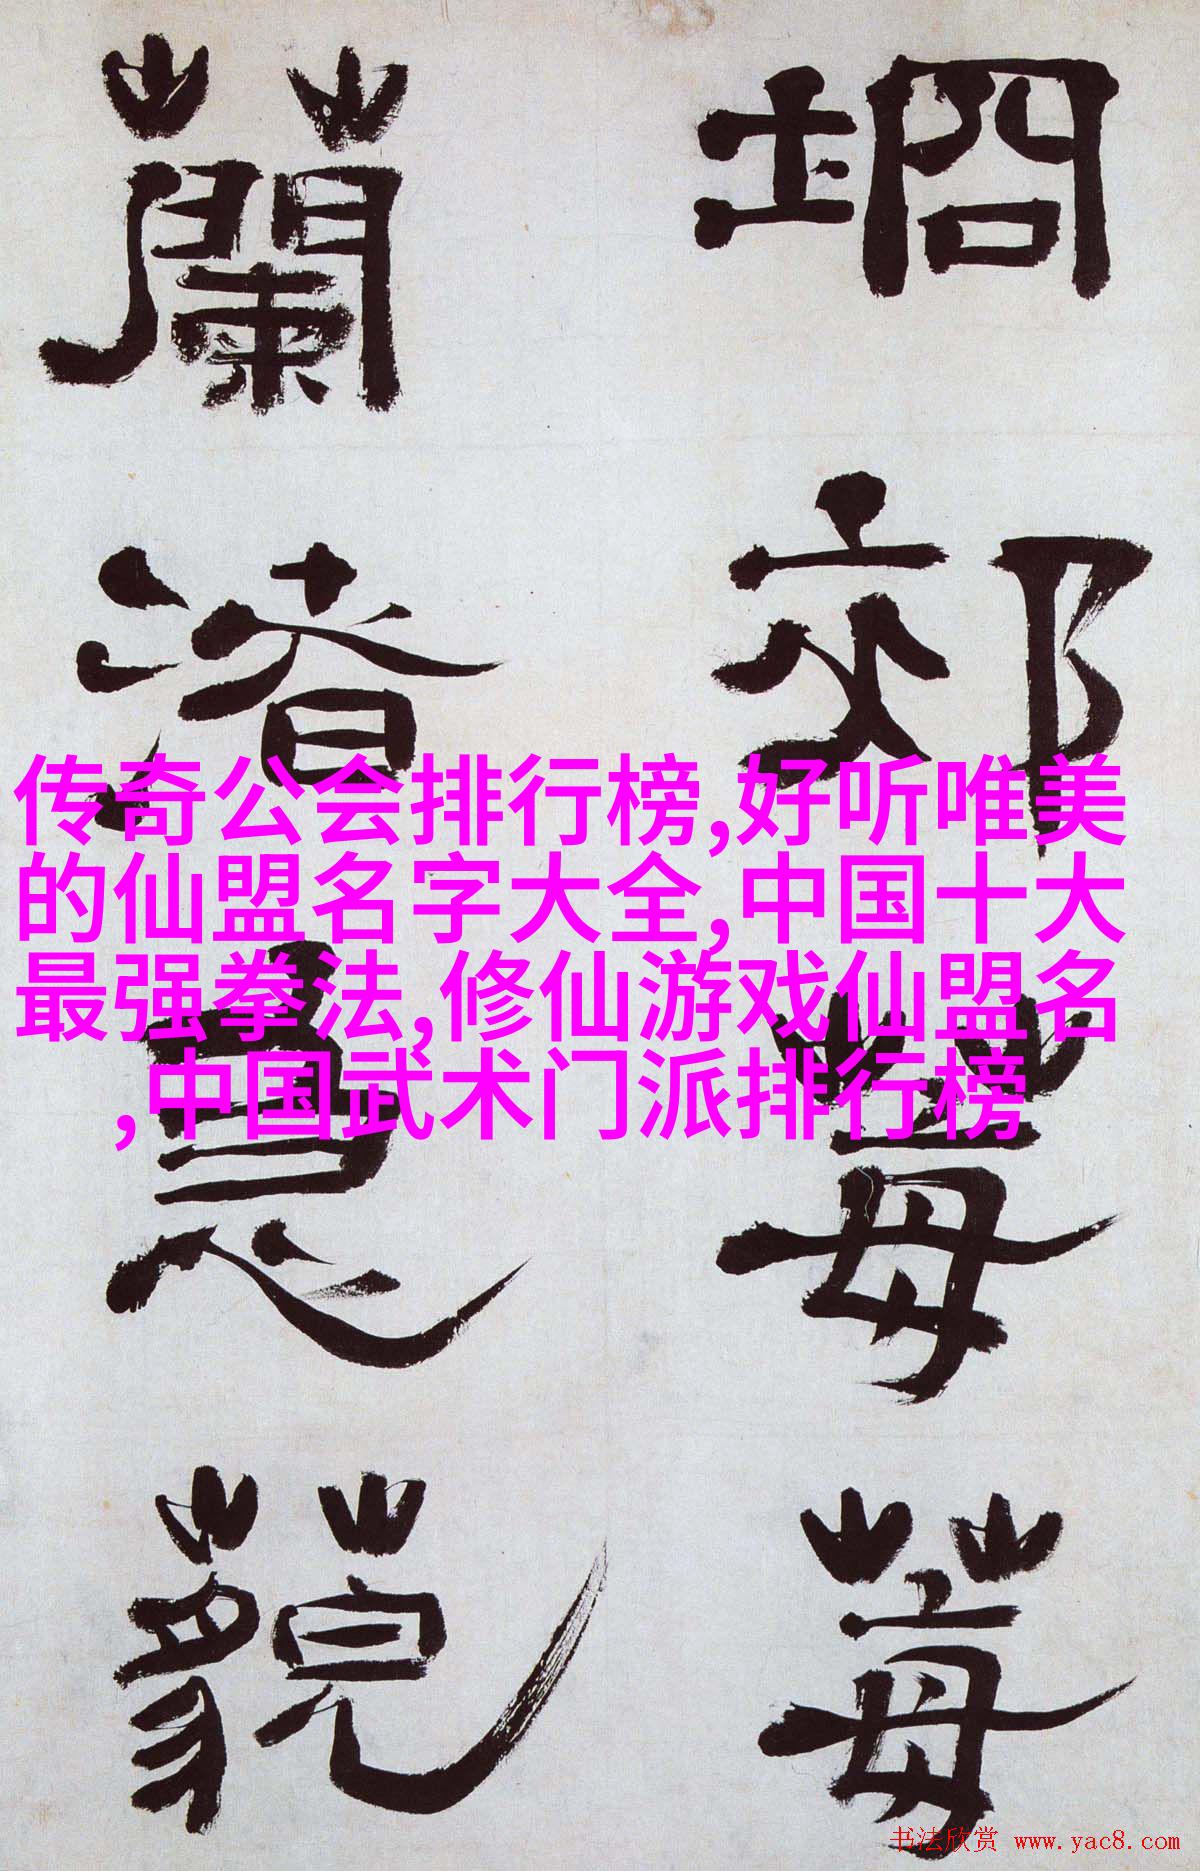 坰郊莓莓
蘭渚藐
传奇公会排行榜,好听唯美
的仙盟名字大全,中国十大
最强拳法,修仙游戏仙盟名
,中国武术门派排行榜
书法欣赏 www.yac8.com